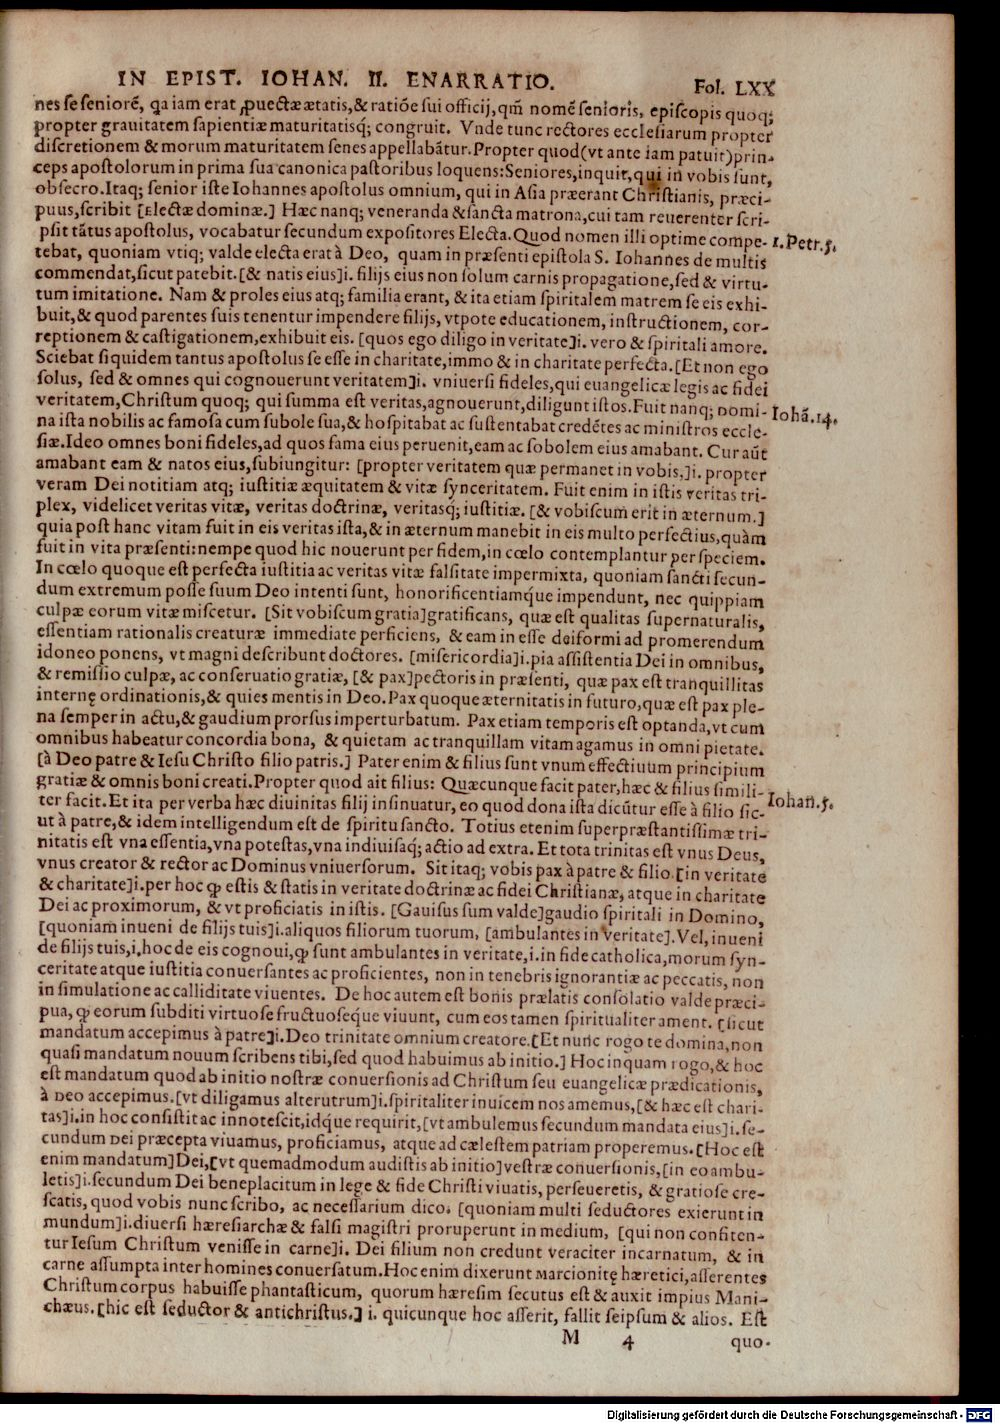 IN EPIST. IOHAN. II. ENARRATIO. Fol. LXX
nes se seniorẽ, ꝗa iam erat ꝓuectæ ætatis, & ratiõe sui officij, qm̃ nomẽ senioris, episcopis quoq;
propter grauitatem sapientiæ maturitatisq́; congruit. Vnde tunc rectores ecclesiarum propter
discretionem & morum maturitatem senes appellabãtur. Propter quod (vt ante iam patuit) prin-
ceps apostolorum in prima sua canonica pastoribus loquens: Seniores, inquit, qui in vobis sunt,
obsecro. Itaq; senior iste Iohannes apostolus omnium, qui in Asia præerant Christianis, præci-
puus, scribit [Electæ dominæ.] Hæc nanq; veneranda & sancta matrona, cui tam reuerenter scri-
psit tãtus apostolus, vocabatur secundum expositores Electa. Quod nomen illi optime compe- 1. Petr. 5.
tebat, quoniam vtiq; valde electa erat à Deo, quam in præsenti epistola S. Iohannes de multis
commendat, sicut patebit. [& natis eius] i. filijs eius non solum carnis propagatione, sed & virtu-
tum imitatione. Nam & proles eius atq; familia erant, & ita etiam spiritalem matrem se eis exhi-
buit, & quod parentes suis tenentur impendere filijs, vtpote educationem, instructionem, cor-
reptionem & castigationem, exhibuit eis. [quos ego diligo in veritate] i. vero & spiritali amore.
Sciebat siquidem tantus apostolus se esse in charitate, immo & in charitate perfecta. [Et non ego
solus, sed & omnes qui cognouerunt veritatem] i. vniuersi fideles, qui euangelicæ legis ac fidei
veritatem, Christum quoq; qui summa est veritas, agnouerunt, diligunt istos. Fuit nanq; domi- Iohã. 14.
na ista nobilis ac famosa cum subole sua, & hospitabat ac sustentabat credẽtes ac ministros eccle-
siæ. Ideo omnes boni fideles, ad quos fama eius peruenit, eam ac sobolem eius amabant. Cur aũt
amabant eam & natos eius, subiungitur: [propter veritatem quæ permanet in vobis,] i. propter
veram Dei notitiam atq; iustitiæ æquitatem & vitæ synceritatem. Fuit enim in istis veritas tri-
plex, videlicet veritas vitæ, veritas doctrinæ, veritasq́; iustitiæ. [& vobiscum erit in æternum.]
quia post hanc vitam fuit in eis veritas ista, & in æternum manebit in eis multo perfectius, quàm
fuit in vita præsenti: nempe quod hic nouerunt per fidem, in cœlo contemplantur per speciem.
In cœlo quoque est perfecta iustitia ac veritas vitæ falsitate impermixta, quoniam sancti secun-
dum extremum posse suum Deo intenti sunt, honorificentiamque impendunt, nec quippiam
culpæ eorum vitæ miscetur. [Sit vobiscum gratia] gratificans, quæ est qualitas supernaturalis,
essentiam rationalis creaturæ immediate perficiens, & eam in esse deiformi ad promerendum
idoneo ponens, vt magni describunt doctores. [misericordia] i. pia assistentia Dei in omnibus,
& remissio culpæ, ac conseruatio gratiæ, [& pax] pectoris in præsenti, quæ pax est tranquillitas
internę ordinationis, & quies mentis in Deo. Pax quoque æternitatis in futuro, quæ est pax ple-
na semper in actu, & gaudium prorsus imperturbatum. Pax etiam temporis est optanda, vt cum
omnibus habeatur concordia bona, & quietam ac tranquillam vitam agamus in omni pietate.
[à Deo patre & Iesu Christo filio patris.] Pater enim & filius sunt vnum effectiuum principium
gratiæ & omnis boni creati. Propter quod ait filius: Quæcunque facit pater, hæc & filius simili-
ter facit. Et ita per verba hæc diuinitas filij insinuatur, eo quod dona ista dicũtur esse à filio sic- Iohañ. 5.
ut à patre, & idem intelligendum est de spiritu sancto. Totius etenim superpræstantissimæ tri-
nitatis est vna essentia, vna potestas, vna indiuisaq́; actio ad extra. Et tota trinitas est vnus Deus,
vnus creator & rector ac Dominus vniuersorum. Sit itaq; vobis pax à patre & filio [in veritate
& charitate] i. per hoc ꝙ estis & statis in veritate doctrinæ ac fidei Christianæ, atque in charitate
Dei ac proximorum, & vt proficiatis in istis. [Gauisus sum valde] gaudio spiritali in Domino,
[quoniam inueni de filijs tuis] i. aliquos filiorum tuorum, [ambulantes in veritate]. Vel, inueni
de filijs tuis, i. hoc de eis cognoui, ꝙ sunt ambulantes in veritate, i. in fide catholica, morum syn-
ceritate atque iustitia conuersantes ac proficientes, non in tenebris ignorantiæ ac peccatis, non
in simulatione ac calliditate viuentes. De hoc autem est bonis prælatis consolatio valde præci-
pua, ꝙ eorum subditi virtuose fructuoseque viuunt, cum eos tamen spiritualiter ament. [sicut
mandatum accepimus à patre] i. Deo trinitate omnium creatore. [Et nunc rogo te domina, non
quasi mandatum nouum scribens tibi, sed quod habuimus ab initio.] Hoc inquam rogo, & hoc
est mandatum quod ab initio nostræ conuersionis ad Christum seu euangelicæ prædicationis,
à Deo accepimus. [vt diligamus alterutrum] i. spiritaliter inuicem nos amemus, [& hæc est chari-
tas] i. in hoc consistit ac innotescit, idque requirit, [vt ambulemus secundum mandata eius] i. se-
cundum Dei præcepta viuamus, proficiamus, atque ad cælestem patriam properemus. [Hoc est
enim mandatum] Dei, [vt quemadmodum audistis ab initio] vestræ conuersionis, [in eo ambu-
letis] i. secundum Dei beneplacitum in lege & fide Christi viuatis, perseueretis, & gratiose cre-
scatis, quod vobis nunc scribo, ac necessarium dico. [quoniam multi seductores exierunt in
mundum] i. diuersi hæresiarchæ & falsi magistri proruperunt in medium, [qui non confiten-
tur Iesum Christum venisse in carne] i. Dei filium non credunt veraciter incarnatum, & in
carne assumpta inter homines conuersatum. Hoc enim dixerunt Marcionitę hæretici, asserentes
Christum corpus habuisse phantasticum, quorum hæresim secutus est & auxit impius Mani-
chæus. [hic est seductor & antichristus.] i. quicunque hoc asserit, fallit seipsum & alios. Est
M 4 quo-
Digitalisierung gefördert durch die Deutsche Forschungsgemeinschaft - DFG